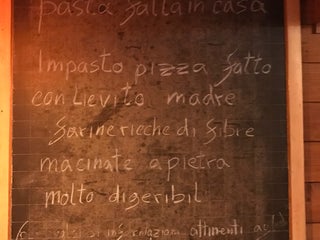 pasta fatta in casa
Impasto pizza fatto
con Lievito madre
farine ricche di fibre
macinate a pietra
molto digeribil
informazioni attinenti agli